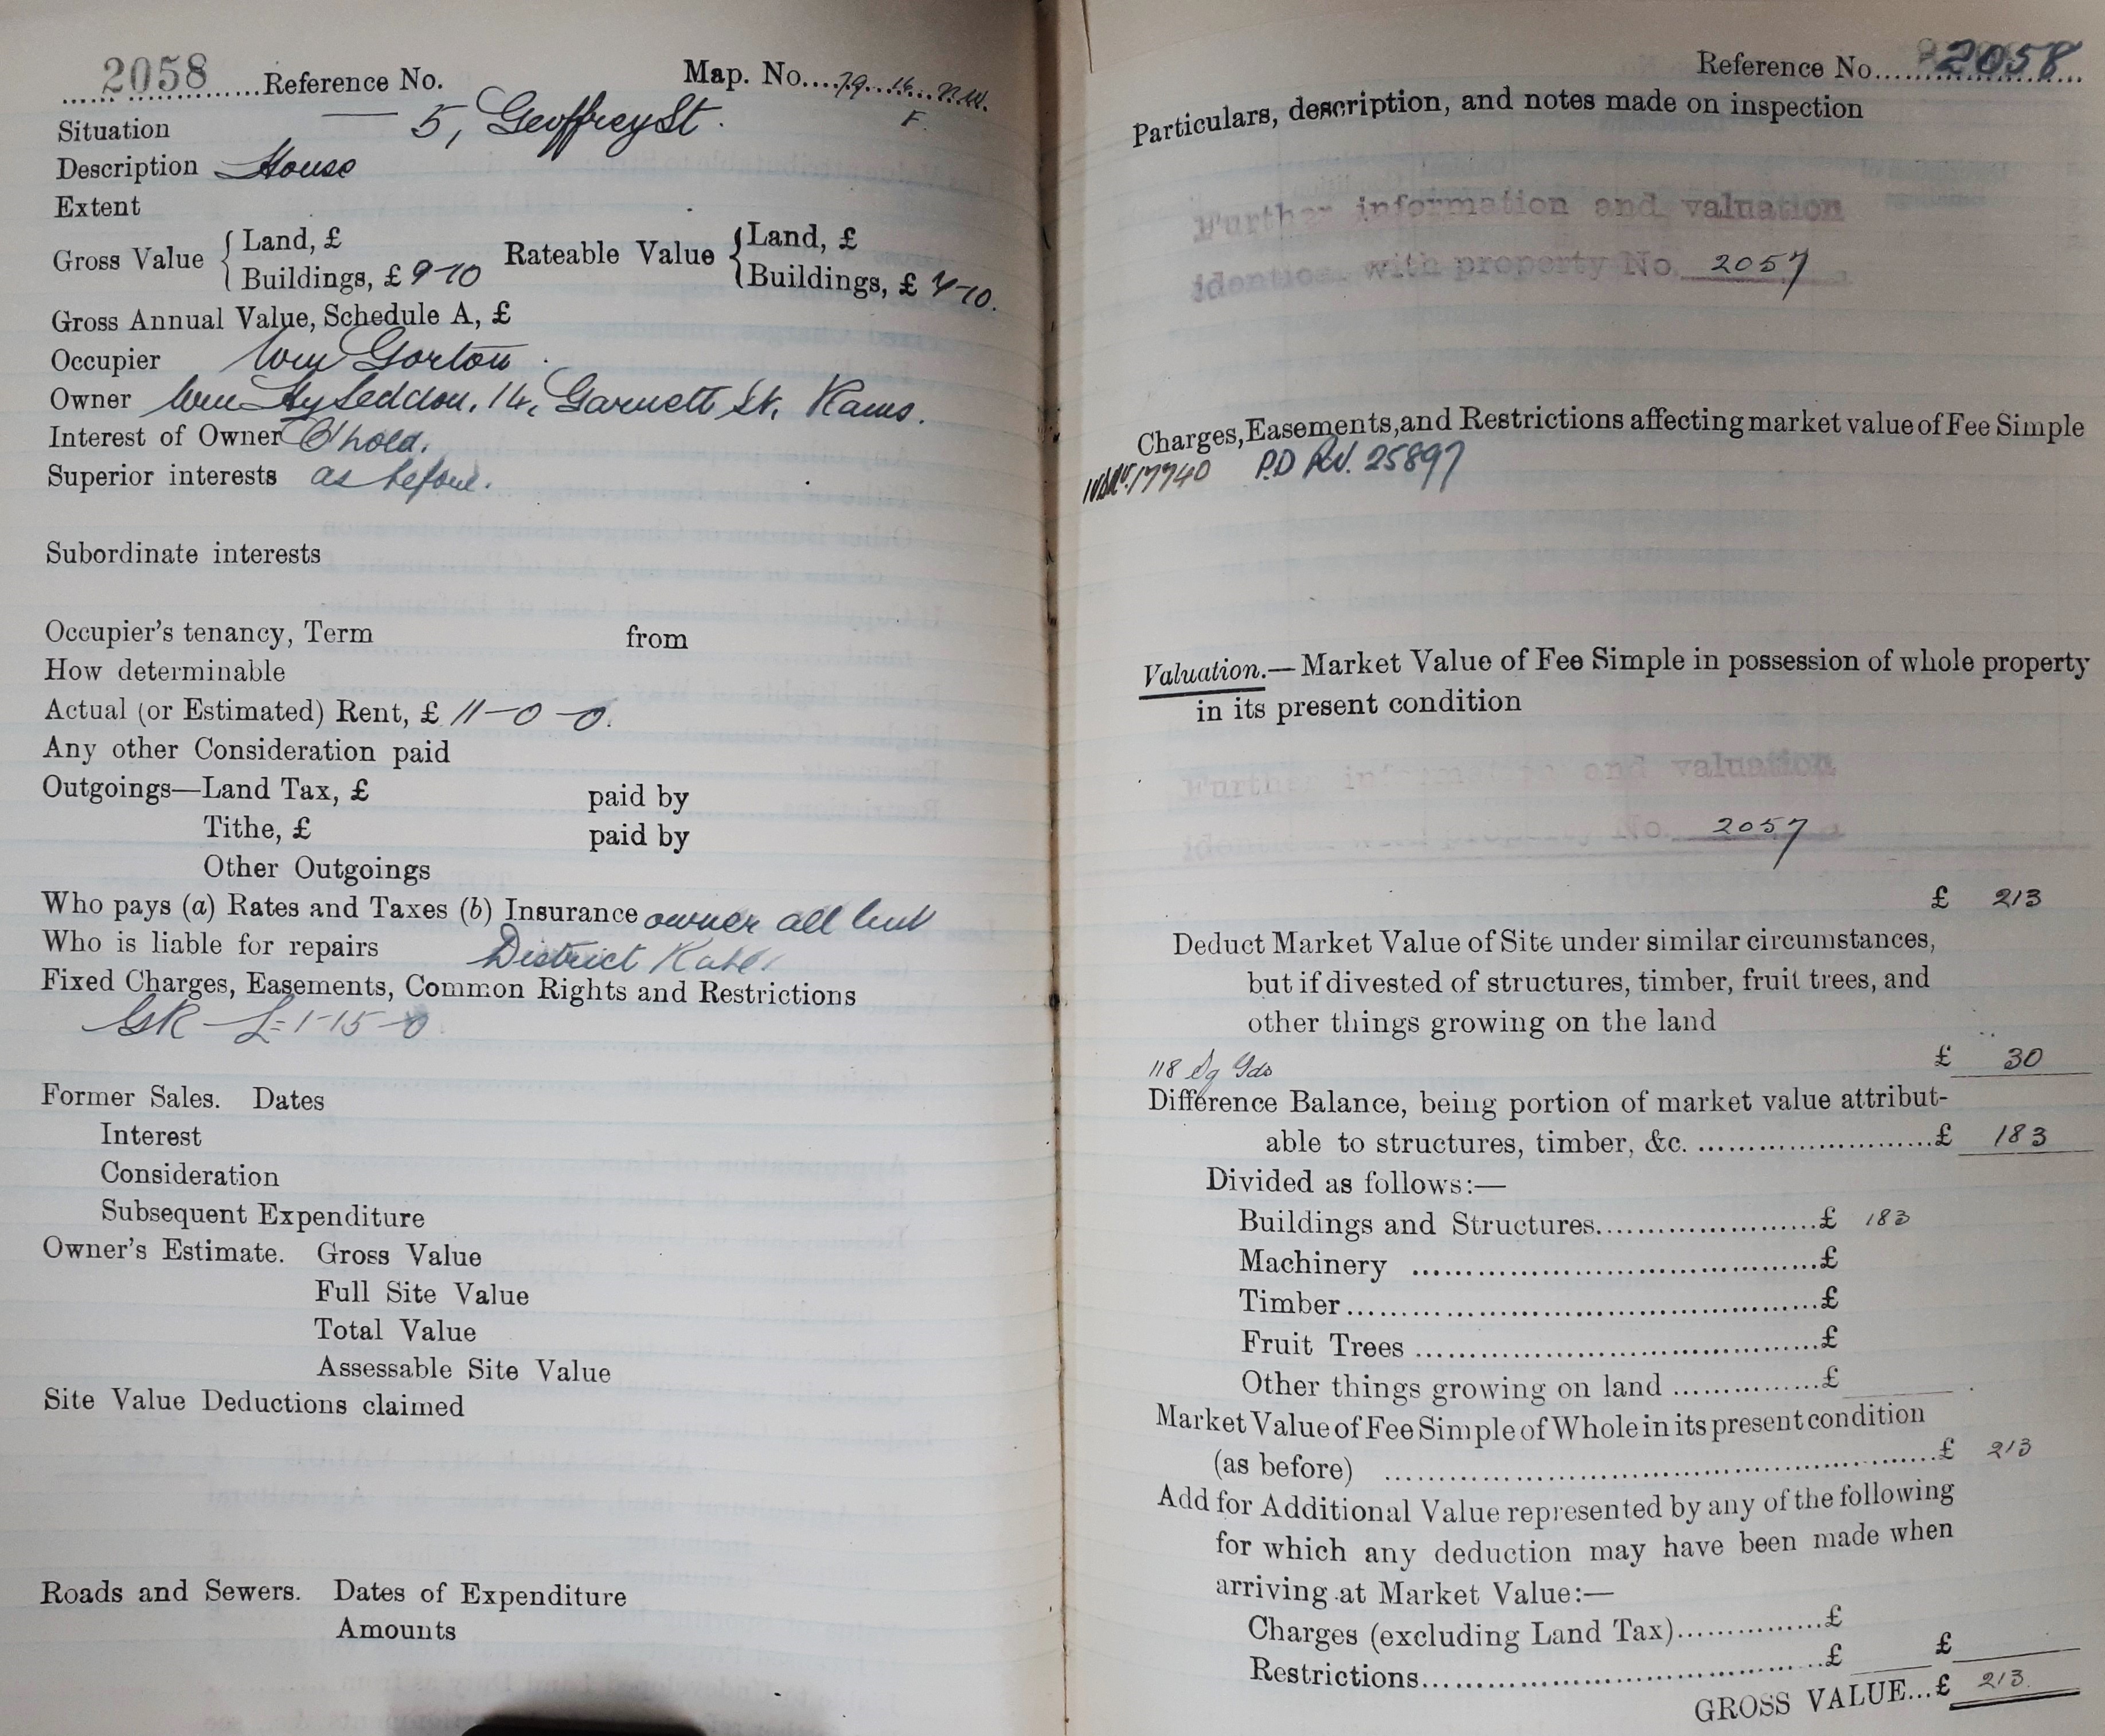 2058 Reference No. Map. No. 79. 16. N.W.
F.
Situation 5, Geoffrey St.
Description House
Extent
Gross Value { Land, £ Rateable Value { Land, £
Buildings, £ 9-10 Buildings, £ 7-10.
Gross Annual Value, Schedule A, £
Occupier Wm Gorton
Owner Wm Hy Seddon, 14, Garnett St, Rams.
Interest of Owner L'hold.
Superior interests as before.
Subordinate interests
Occupier's tenancy, Term from
How determinable
Actual (or Estimated) Rent, £ 11-0-0.
Any other Consideration paid
Outgoings—Land Tax, £ paid by
Tithe, £ paid by
Other Outgoings
Who pays (a) Rates and Taxes (b) Insurance owner all but
Who is liable for repairs District Rate.
Fixed Charges, Easements, Common Rights and Restrictions
GR £1-15-0
Former Sales. Dates
Interest
Consideration
Subsequent Expenditure
Owner's Estimate. Gross Value
Full Site Value
Total Value
Assessable Site Value
Site Value Deductions claimed
Roads and Sewers. Dates of Expenditure
Amounts
Reference No. 2058
Particulars, description, and notes made on inspection
Further information and valuation
identical with property No. 2057
Charges, Easements, and Restrictions affecting market value of Fee Simple
17740 P.D 25897
Valuation.—Market Value of Fee Simple in possession of whole property
in its present condition
Further information and valuation
identical with property No. 2057
£ 213
Deduct Market Value of Site under similar circumstances,
but if divested of structures, timber, fruit trees, and
other things growing on the land
118 Sq Yds £ 30
Difference Balance, being portion of market value attribut-
able to structures, timber, &c. £ 183
Divided as follows:—
Buildings and Structures £ 183
Machinery £
Timber £
Fruit Trees £
Other things growing on land £
Market Value of Fee Simple of Whole in its present condition
(as before) £ 213
Add for Additional Value represented by any of the following
for which any deduction may have been made when
arriving at Market Value:—
Charges (excluding Land Tax) £
Restrictions £ £
GROSS VALUE...£ 213